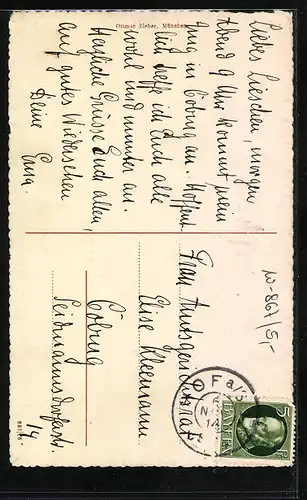 Ottmar Zieher, München
Liebes Lieschen, morgen
Abend 9 Uhr kommt mein
in Coburg an. Hoffent-
lich treff ich Euch alle
wohl und munter an.
Herzliche Grüsse Euch allen,
auf gutes Wiedersehen
Deine
Erna.
Frau Amtsgerichtsrat
Elise Kleemann
Coburg
Seidmannsdorferstr.
14
BAYERN
5
10-861/5,-